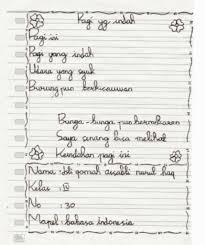 Pagi yg indah
Pagi ini
Pagi yang indah
Udara yang sejuk
Burung pun berkicauwan
Bunga-bunga pun bermekaran
Saya senang bisa melihat
Keindahan pagi ini
Nama : Siti qomah assabti nurul haq
Kelas : IV
No : 30
Mapel : bahasa indonesia